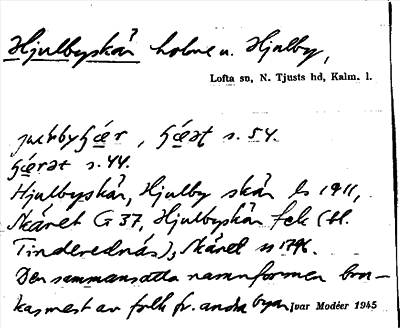 Hjulbyskär holme u. Hjulby,
Lofta sn, N. Tjusts hd, Kalm. l.
s. 54.
s. 44.
Hjulbyskär, Hjulby skär Es 1911,
Skäret G 37, Hjulbyskär fek (bl.
Tinderednäs), Skäret 1796.
Den sammansatta namnformen bru-
kas mest av folk fr. andra byar
Ivar Modéer 1945